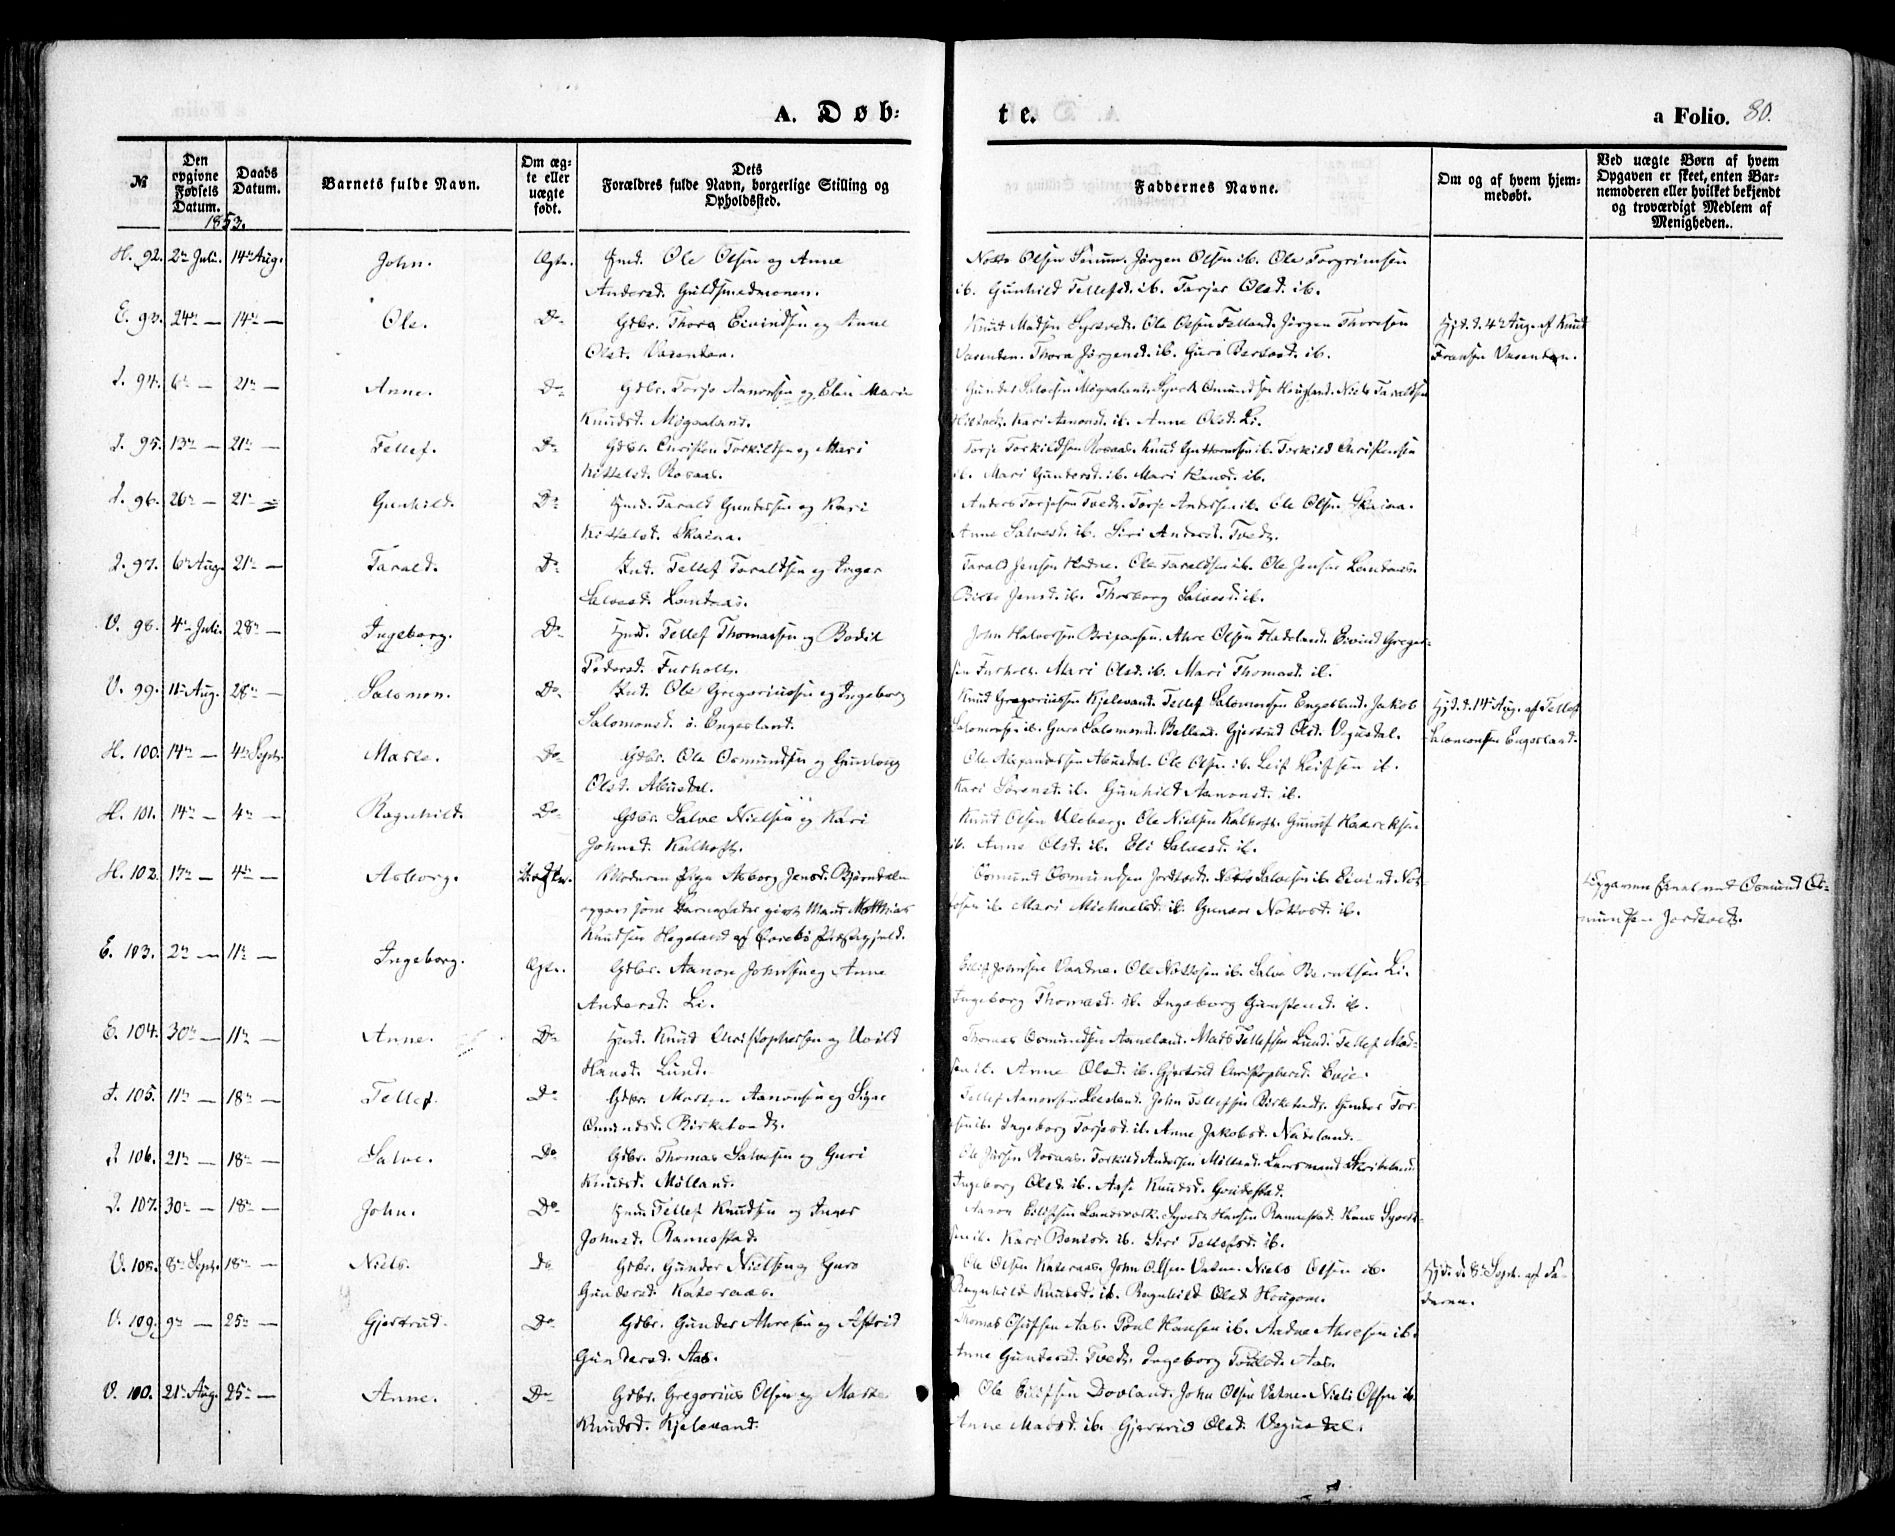 A. Døb:
te.
a Folio. 80.
№
Den opgivne Fødsels Datum.
Daabs Datum.
1853.
Barnets fulde Navn.
Om ægte eller uægte født.
Dets Forældres fulde Navn, borgerlige Stilling og Opholdssted.
Faddernes Navne.
Om og af hvem hjemmedøbt.
Ved uægte Børn af hvem Opgaven er skeet, enten Barnemoderen eller hvilket bekjendt og troværdigt Medlem af Menigheden.
H. 92. 2n Juli. 14n Aug. John. Ægte. Ole Olsen og Anne
Andersd. Guldsmedmonen.
Notto Olsen Senum. Jörgen Olsen ib. Ole Torgrimsen
ib. Gunhild Tellefsd. ib. Tarjer Olsd. ib.
E. 93. 24n — 14n — Ole. Do Gdbr. Thore Eivindsen og Anne
Olsd. Vasenden.
Knud Madsen Syrtveds. Ole Olsen Felland. Jörgen Thoresen
Vasenden. Thora Jörgensd. ib. Guri Bersvsd. ib.
Hjd. d. 4n Aug. af Knud
Fransen Vasenden.
I. 94. 6n — 21n — Anne. Do Gdbr. Torje Aanonsen og Elen Marie
Knudsd. Mögaaland.
Kari Aanonsd. ib. Anne Olsd. Li.
I. 95. 13n — 21n — Tellef. Do Gdbr. Christen Torkildsen og Mari
Kittelsd. Rosaas.
Torje Torkildsen Rosaas. Knud Guttormsen ib. Torkild Christensen
ib. Mari Gundersd. ib. Mari Knudsd. ib.
I. 96. 26n — 21n — Gunhild. Do Tarald Gundersen og Kari
Kittelsd. Skaiaa.
Anders Torjesen Tveds. Torje Andersen ib. Ole Olsen Skaiaa.
Anne Salvesd. ib. Siri Andersd. Tveds.
I. 97. 6n Aug. 21n — Tarald. Do Tellef Taraldsen og Inger
Salvesd. Landaas.
Tarald Jensen Hodne. Ole Taraldsen ib. Ole Jensen Landaas.
Birte Jensd. ib. Thorborg Salvesd. ib.
V. 98. 4n Juli. 28n — Ingeborg. Do Tellef Thomassen og Bodil
Pedersd. Furholt.
John Halvorsen. Ahre Olsen Hadeland. Eivind Gregersen
Furholt. Mari Olsd. ib. Mari Thomasd. ib.
V. 99. 11n Aug. 28n — Salomon. Do Ole Gregoriussen og Ingeborg
Salomonsd. ö. Engesland.
Knud Gregoriussen Kjelevand. Tellef Salomonsen Engesland. Jakob
Salomonsen ib. Guro Salomonsd. Belland. Gjertrud Olsd. Vegusdal.
Hjd. d. 14n Aug. af Tellef
Salomonsen Engesland.
H. 100. 14n — 4n Septr. Marte. Do Gdbr. Ole Osmundsen og Gunlaug
Olsd. Abusdal.
Ole Alexandersen Abusdal. Ole Olsen ib. Leif Leifsen ib.
Kari Sörensd. ib. Gunhild Aanonsd. ib.
H. 101. 14n — 4n — Ragnhild. Do Gdbr. Salve Nielsen og Kari
Johnsd. Kalhoft.
Knud Olsen Uleberg. Ole Nielsen Kalhoft.
ib. Anne Olsd. ib. Eli Salvesd. ib.
H. 102. 17n — 4n — Asborg. Moderen Pige Asborg Jensd. Björndalen
opgav som Barnefader gift Mand Matthias
Knudsen Hægeland af
Osmund Osmundsen Jordtvedt. Notto Salvesen ib. Eivind Nottosen
ib. Mari Michaelsd. ib. Gunvor Nottosd. ib.
Osmund Osmundsen Jordtvedt.
E. 103. 2n — 11n — Ingeborg. Ægte. Gdbr. Aanon Johnsen og Anne
Andersd. Li.
Ellef Johnsen Vaadne. Ole Nottosen ib. Salve Berulfsen Li.
Ingeborg Thomasd. ib. Ingeborg Gunstensd. ib.
E. 104. 30n — 11n — Anne. Do Knud Christophersen og Uvild
Hansd. Lund.
Thomas Osmundsen Aaneland. Mads Tellefsen Lund. Tellef Madsen
ib. Anne Olsd. ib. Gjertrud Christophersd. Evje.
I. 105. 11n — 18n — Tellef. Do Gdbr. Morten Aanonsen og Signe
Omundsd. Birketveds.
Tellef Aanonsen. John Tellefsen Birketveds. Gunder Torsen
ib. Ingeborg Torjesd. ib. Anne Jakobsd. Nateland.
I. 106. 21n — 18n — Salve. Do Gdbr. Thomas Salvesen og Guri
Knudsd. Mölland.
Ole Rosaas. Torkild Andersen Mölland. Lensmand Skribeland.
Ingeborg Olsd. ib. Aase Knudsd. Greibestad.
I. 107. 30n — 18n — John. Do Tellef Knudsen og Inger
Johnsd. Rannestad.
Aanon Eilefsen Landsverk. Syvert Hansen Rannestad. Hans Syvertsen
ib. Kari Bentsd. ib. Siri Tellefsd. ib.
V. 108. 8n Septr. 18n — Niels. Do Gdbr. Gunder Nielsen og Guro
Gundersd. Kateraas.
Ole Olsen Kateraas. John Olsen Vatne. Niels Olsen ib.
Ragnhild Knudsd. ib. Ragnhild Olsd. Hougom.
Hjd. d. 8n Septr. af Faderen.
V. 109. 9n — 25n — Gjertrud. Do Gdbr. Gunder Ahresen og Astrid
Gundersd. Aas.
Thomas Osufsen Aas. Poul Hansen ib. Aadne Ahresen ib.
Anne Gundersd. Tveds. Ingeborg Poulsd. Aas.
V. 110. 21n Aug. 25n — Anne. Do Gdbr. Gregorius Olsen og Marte
Knudsd. Kjelevand.
Ole Eilifsen Dovland. John Olsen Vatne. Niels Olsen ib.
Anne Madsd. ib. Gjertrud Olsd. Vegusdal.